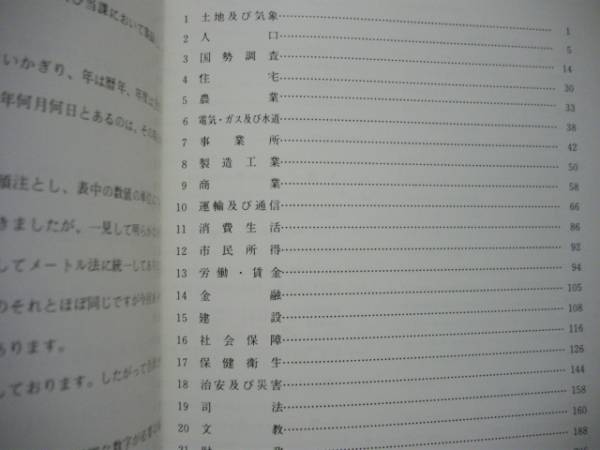 び当課において
いかぎり、年は暦年、年度は
年何月何日とあるのは、その
頭注とし、表中の数値の単位
きましたが、一見して明らかな
してメートル法に統一してあり
のそれとほぼ同じですが今回
あります。
しております。したがって
な数字が必要な
1 土地及び気象 1
2 人口 5
3 国勢調査 14
4 住宅 30
5 農業 33
6 電気・ガス及び水道 38
7 事業所 42
8 製造工業 50
9 商業 58
10 運輸及び通信 66
11 消費生活 86
12 市民所得 92
13 労働・賃金 94
14 金融 105
15 建設 108
16 社会保障 116
17 保健衛生 126
18 治安及び災害 144
19 司法 158
20 文教 160
21 財政 188